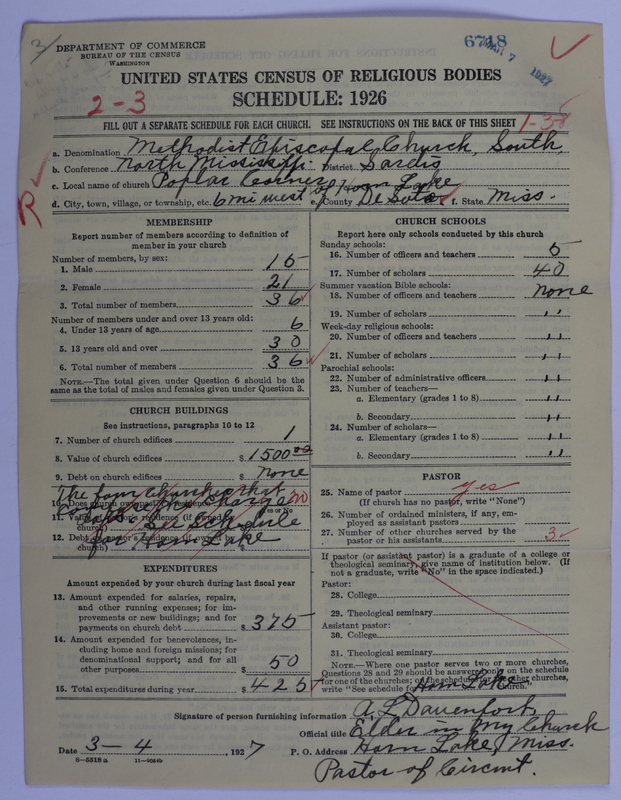 3/
DEPARTMENT OF COMMERCE
BUREAU OF THE CENSUS
WASHINGTON
6718
MAR 7 1927
UNITED STATES CENSUS OF RELIGIOUS BODIES
2-3
SCHEDULE: 1926
FILL OUT A SEPARATE SCHEDULE FOR EACH CHURCH. SEE INSTRUCTIONS ON THE BACK OF THIS SHEET
1-38
a. Denomination Methodist Episcopal Church, South,
b. Conference North Mississippi District Sardis
c. Local name of church Poplar Corner
d. City, town, village, or township, etc. 6 mi west of Horn Lake e. County De Soto f. State Miss.
R
MEMBERSHIP
Report number of members according to definition of
member in your church
Number of members, by sex:
1. Male 15
2. Female 21
3. Total number of members 36
Number of members under and over 13 years old:
4. Under 13 years of age 6
5. 13 years old and over 30
6. Total number of members 36
NOTE.—The total given under Question 6 should be the
same as the total of males and females given under Question 3.
CHURCH BUILDINGS
See instructions, paragraphs 10 to 12
7. Number of church edifices 1
8. Value of church edifices $ 1500.00
9. Debt on church edifices $ None
The four churches that
10. Does church own pastor's residence Yes or No
no
11. Value of pastor's residence (if owned by
church) $
See Schedule
12. Debt on pastor's residence (if owned by
church) $
for Horn Lake
EXPENDITURES
Amount expended by your church during last fiscal year
13. Amount expended for salaries, repairs,
and other running expenses; for im-
provements or new buildings; and for
payments on church debt $ 375
14. Amount expended for benevolences, in-
cluding home and foreign missions; for
denominational support; and for all
other purposes $ 50
15. Total expenditures during year $ 425
CHURCH SCHOOLS
Report here only schools conducted by this church
Sunday schools:
16. Number of officers and teachers 5
17. Number of scholars 40
Summer vacation Bible schools:
18. Number of officers and teachers None
19. Number of scholars ''
Week-day religious schools:
20. Number of officers and teachers ''
21. Number of scholars ''
Parochial schools:
22. Number of administrative officers ''
23. Number of teachers—
a. Elementary (grades 1 to 8) ''
b. Secondary ''
24. Number of scholars—
a. Elementary (grades 1 to 8) ''
b. Secondary ''
PASTOR
25. Name of pastor yes
(If church has no pastor, write "None")
26. Number of ordained ministers, if any, em-
ployed as assistant pastors
27. Number of other churches served by the
pastor or his assistants 3
If pastor (or assistant pastor) is a graduate of a college or
theological seminary, give name of institution below. (If
not a graduate, write "No" in the space indicated.)
Pastor:
28. College
29. Theological seminary
Assistant pastor:
30. College
31. Theological seminary
NOTE.—Where one pastor serves two or more churches,
Questions 28 and 29 should be answered only on the schedule
for one of the churches; on the schedule for the other churches,
write "See schedule for Horn Lake church."
Signature of person furnishing information A. L. Davenport,
Official title Elder in my Church
Date 3-4, 1927 P. O. Address Horn Lake, Miss.
8-5518 a 11-9064b
Pastor of Circuit.